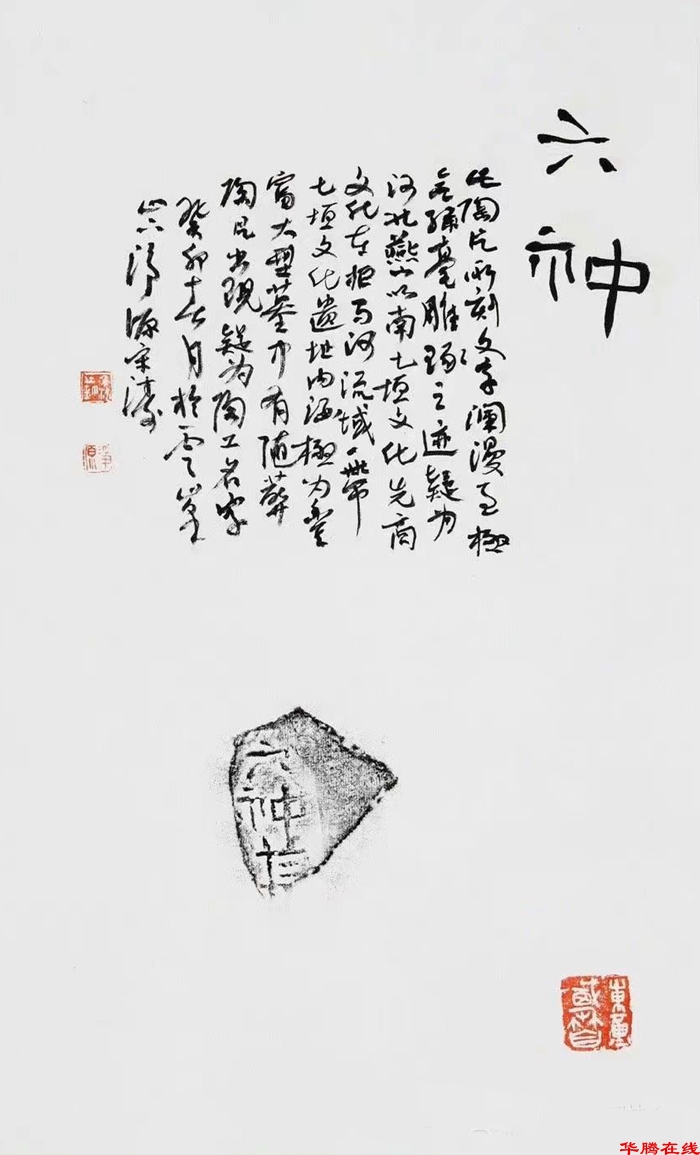 六神
此陶片所刻文字澜漫至極
毫雕琢之迹疑为
河北燕山以南七垣文化先商
文化在拒马河流域一带
七垣文化遗址内涵極为丰
富大型墓中有随葬
陶片出现疑为陶工名字
癸卯月於雲
源宋涛
六神
华腾在线